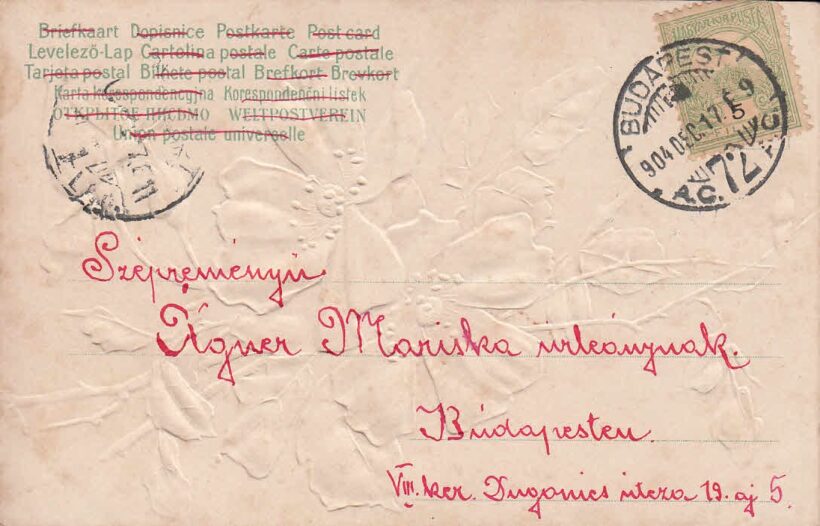 Briefkaart Dopisnice Postkarte Post card
Levelező-Lap Cartolina postale Carte postale
Tarjeta postal Bilhete postal Brefkort Brevkort
Karta korespondencyjna Korespondenční listek
ОТКРЫТОЕ ПИСЬМО WELTPOSTVEREIN
Union postale universelle
MAGYAR KIR. POSTA
BUDAPEST
904 DEC. 17.
5
A.C. 72
Szépreményű
Ágner Mariska urleánynak.
Budapesten.
VIII. ker. Dugonics utcza 19. aj 5.